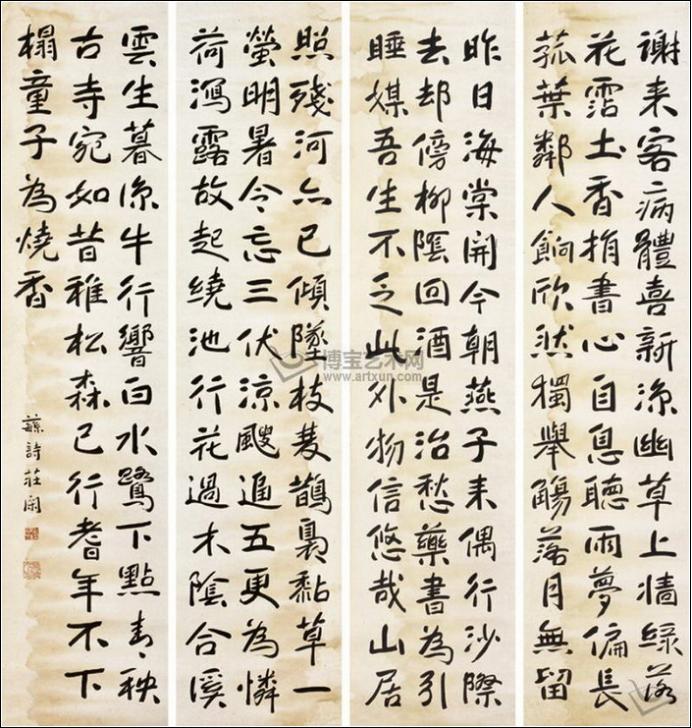 谢来客病體喜新涼幽草上墙緑落
花霑土香捐書心自息聽雨夢偏長
菰葉鄰人餉欣然獨舉觴落月無留
昨日海棠開今朝燕子来偶行沙際
去却傍柳陰回酒是治愁藥書為引
睡媒吾生不乏此外物信悠哉山居
照殘河亦已傾墜枝鵲裊黏草一
螢明暑令忘三伏涼颸逼五更為憐
荷瀉露故起繞池行花過木陰合溪
雲生暮涼牛行響白水鷺下點青秧
古寺宛如昔稚松森已行耆年不下
榻童子為燒香
蘇詩莊閑
博宝艺术网
www.artxun.com